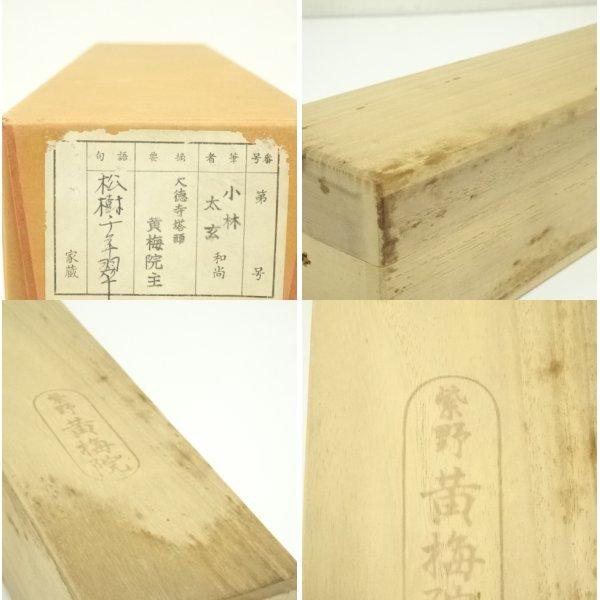 番号
第 号
筆者
小林
太玄 和尚
摘要
大徳寺塔頭
黄梅院主
語句
松樹千年翠
家蔵
紫野
黄梅院
紫野
黄梅院